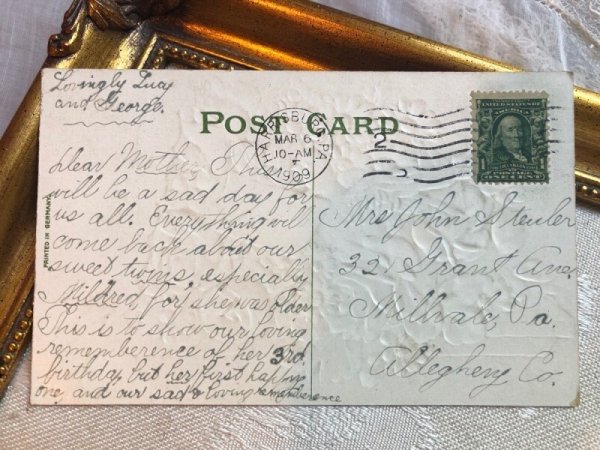 Lovingly Lucy
and George.
POST CARD
HARRISBURG, PA.
MAR 6
10-AM
1909
2
UNITED STATES OF AMERICA
1
Dear Mother, This
will be a sad day for
us all. Everything will
come back about our
sweet twins, especially
Mildred, for she was older
This is to show our loving
rememberence of her 3rd.
birthday, but her first happy
one, and our sad & loving rememberence
PRINTED IN GERMANY.
Mrs John Steuler
321 Grant Ave.
Millvale, Pa.
Allegheny Co.